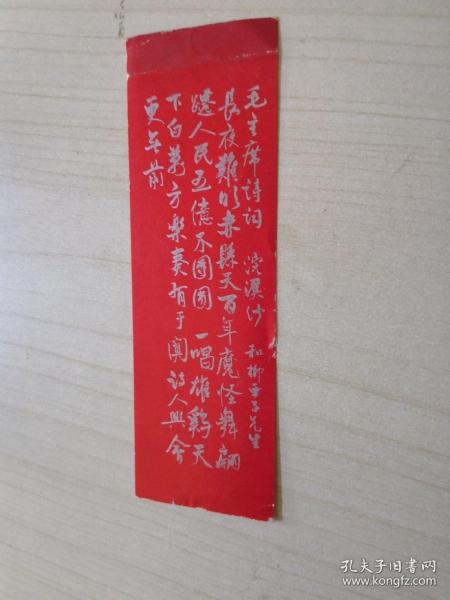 毛主席詩詞 浣溪沙 和柳亞子先生
長夜難明赤縣天百年魔怪舞翩
躚人民五億不團圓 一唱雄鷄天
下白萬方樂奏有于闐詩人興會
更無前
孔夫子旧书网
www.kongfz.com